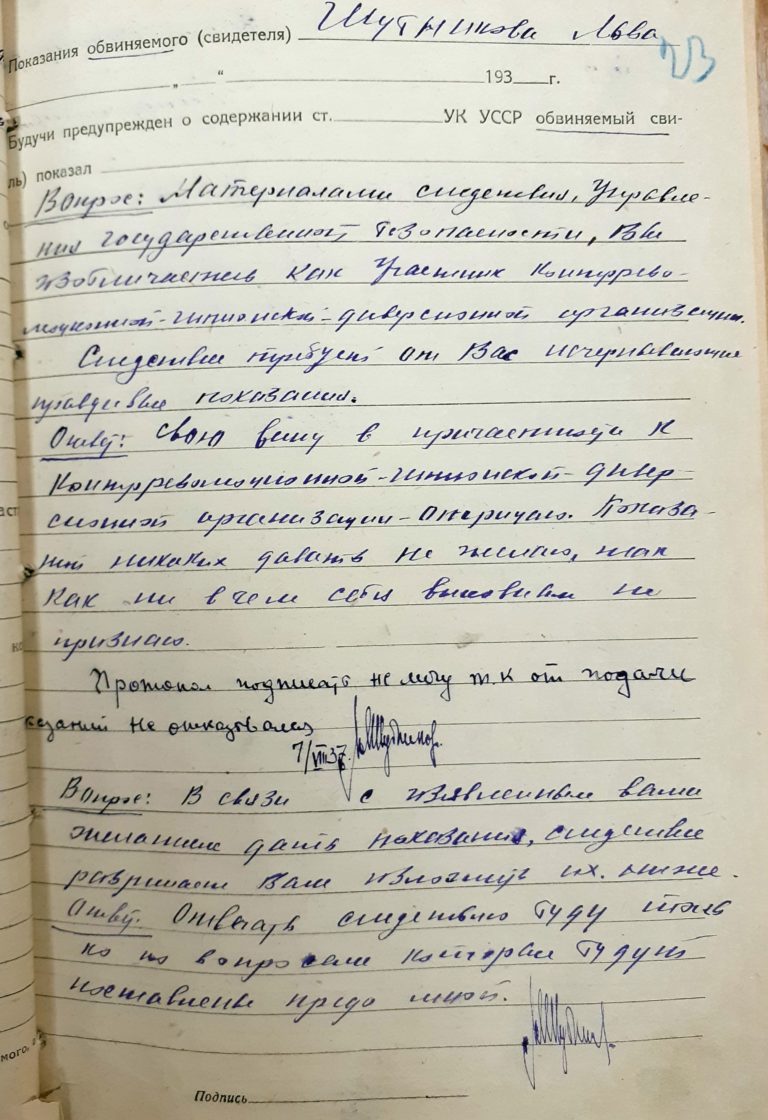 Показания обвиняемого (свидетеля) Шутникова Льва
23
„ “ 193 г.
Будучи предупрежден о содержании ст. УК УССР обвиняемый сви-
ль) показал
Вопрос: Материалами следствия, Управле-
ния государственной безопасности, Вы
изобличаетесь как участник контррево-
люционной-шпионской-диверсионной организации.
Следствие требует от Вас исчерпывающие
правдивые показания.
Ответ: Свою вину в причастности к
контрреволюционной-шпионской-дивер-
сионной организации-отрицаю. Показа-
ний никаких давать не желаю, так
как ни в чем себя виновным не
признаю.
Протокол подписать не могу т.к от подачи
казаний не отказовался
7/VIII 37. Шутников
Вопрос: В связи с изявленным вами
желанием дать показания, следствие
разрешает Вам изложить их.
Ответ. Отвечать следствию буду толь
ко по вопросам которые будут
поставлены предо мной.
Подпись